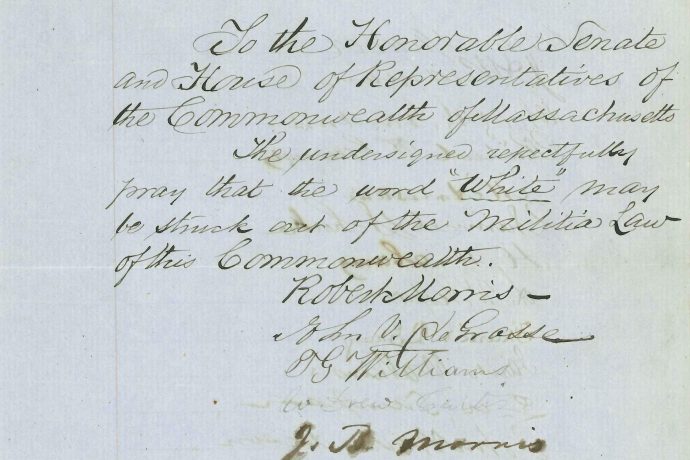 To the Honorable Senate
and House of Representatives of
the Commonwealth of Massachusetts
The undersigned respectfully
pray that the word "White" may
be struck out of the Militia Law
of this Commonwealth.
Robert Morris
John V. DeGrasse
TG Williams
J. B. Morris